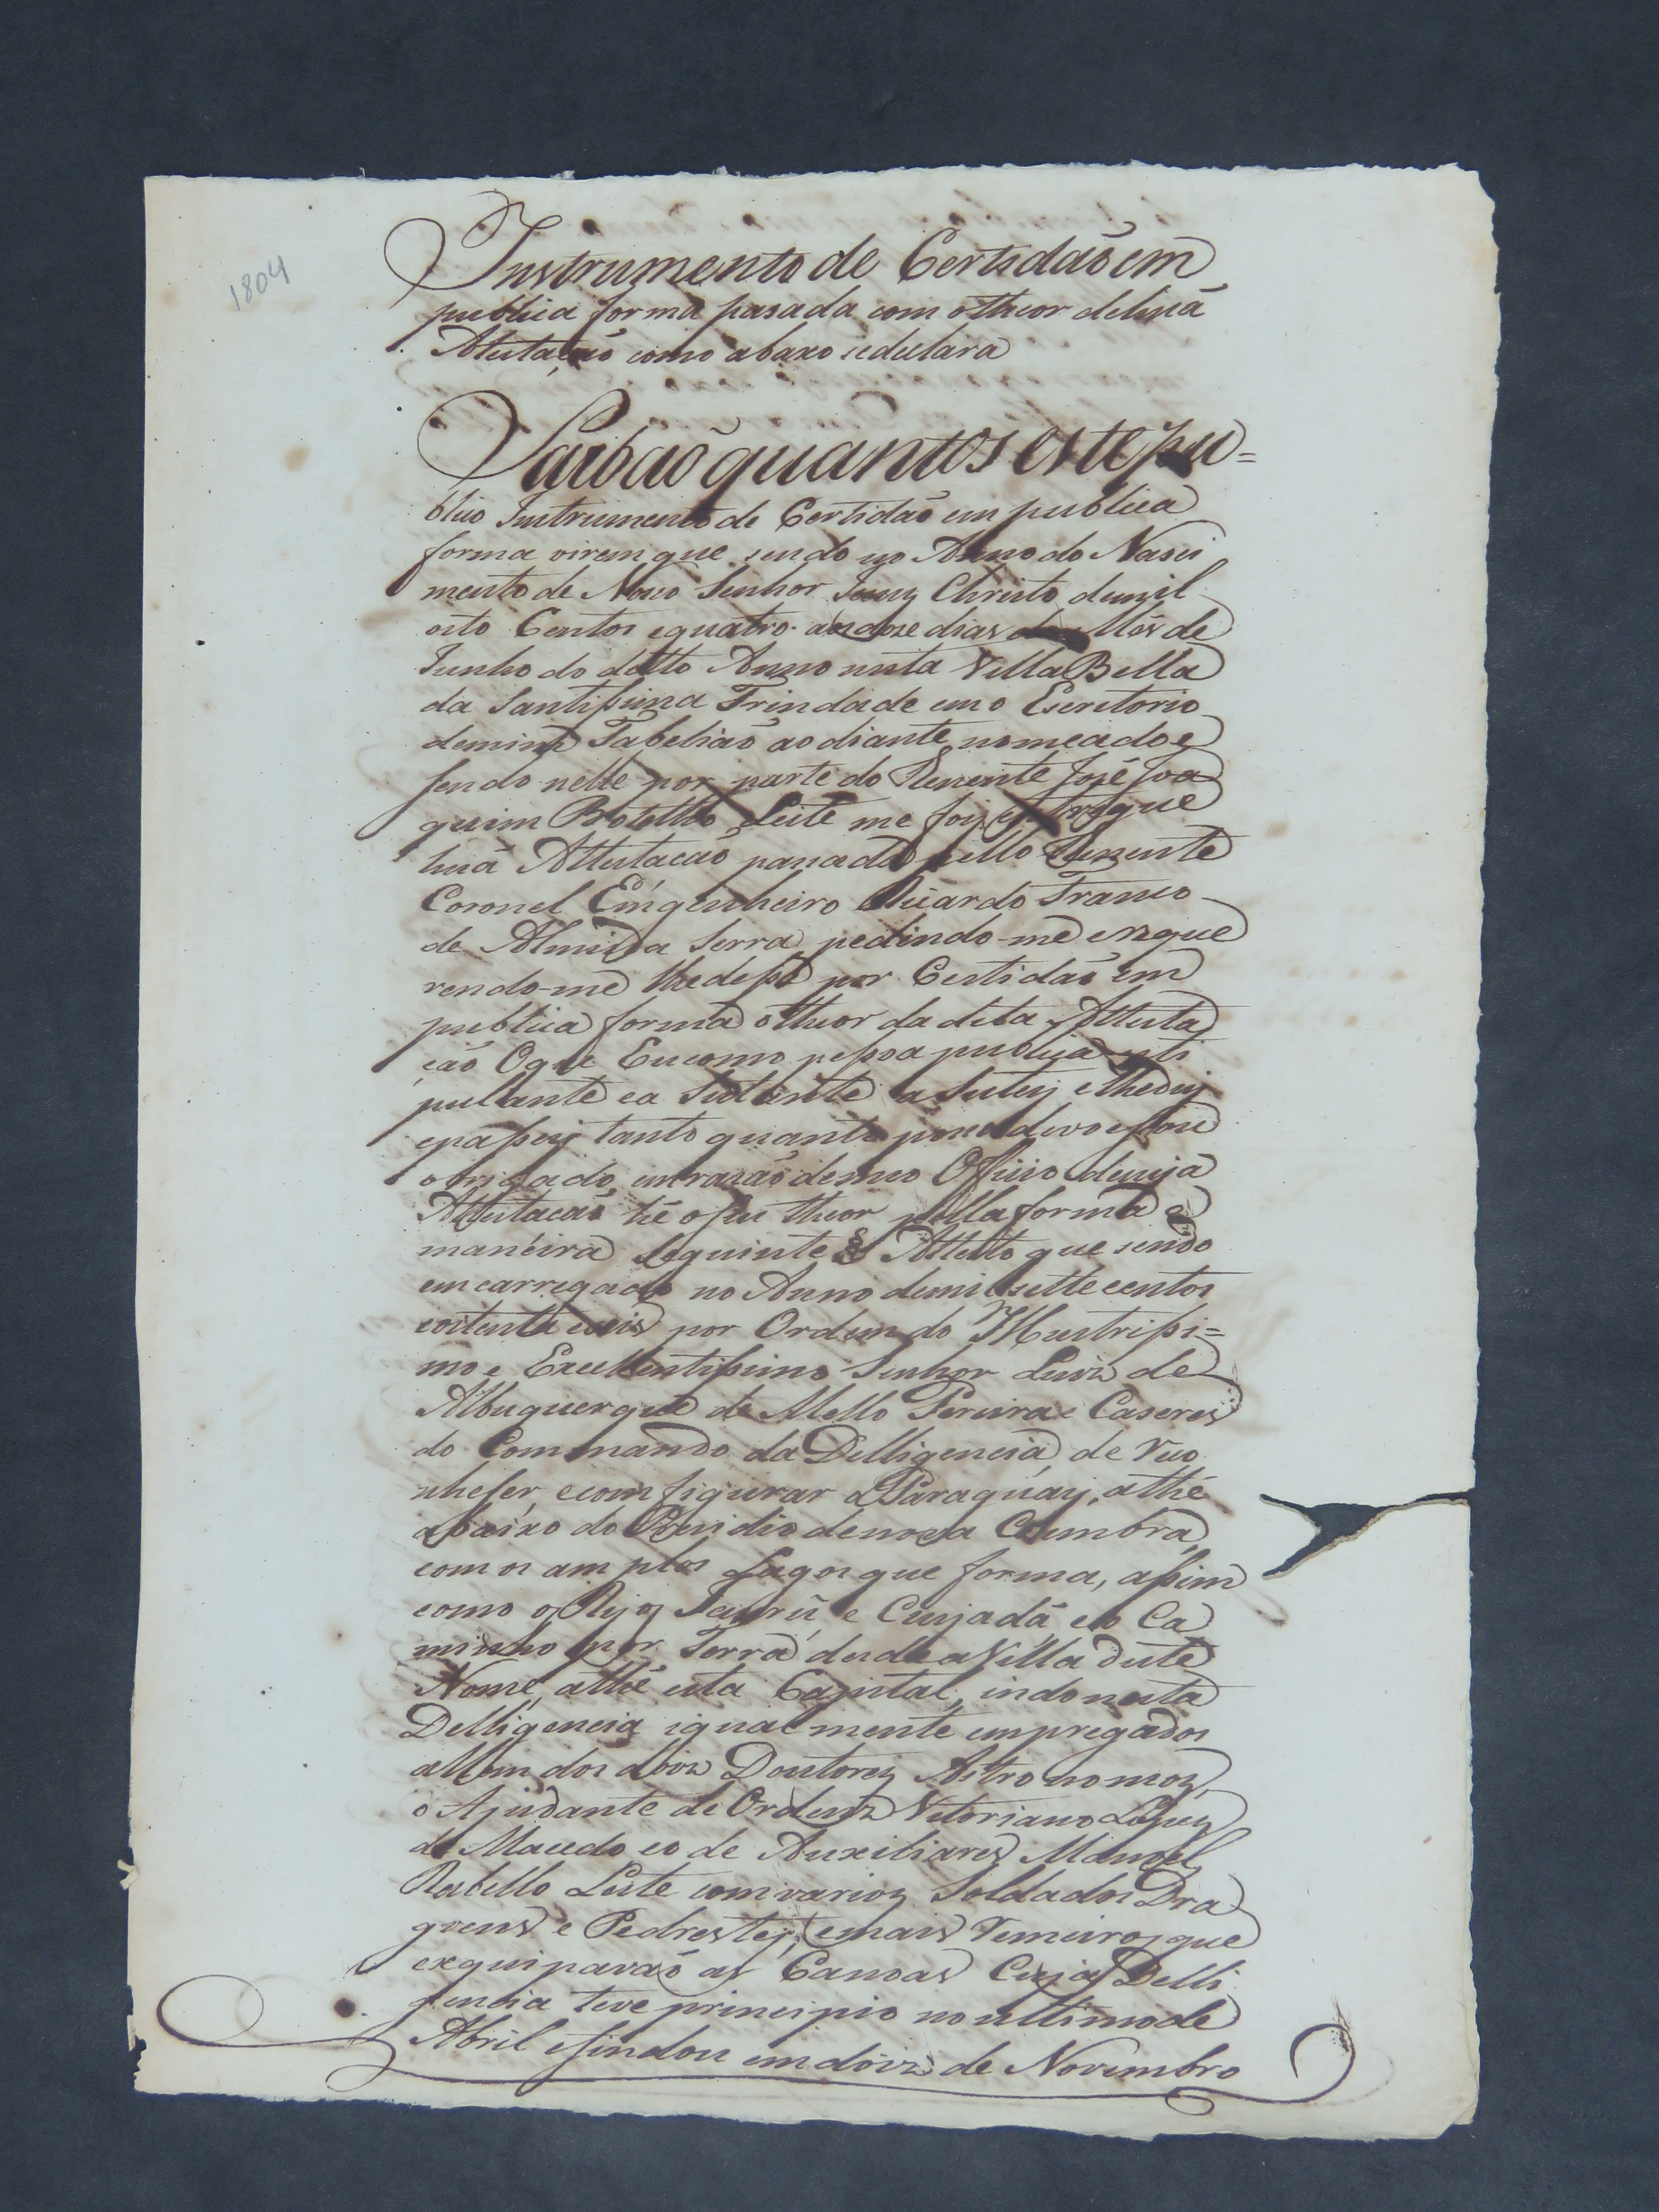 1804
Instrumento de Certidaõ em
publica forma pasada com otheor dehuã
Atestaçaõ como abaxo sedeclara
Saibaõ quantos este pu=
blico Instrumento de Certidaõ em publica
forma virem que sendo no Anno do Nasci
mento de Noso Senhor Jesuz Christo demil
oito Centos equatro aosdoze dias do Mês de
Junho do ditto Anno nesta Villa Bella
da Santissima Trindade emo Escritorio
demim Tabeliaõ ao diante nomeado e
sendo nelle por parte do Tenente José Joa
quim Botelho Leite me foi entregue
huã Attestacaõ pasada pello Tenente
Coronel Emgenheiro Ricardo Franco
de Almeida Serra pedindo-me ereque
rendo-me lhedese por Certidaõ em
publica forma otheor da dita Attesta
çaõ Oque Eu como pessoa publica esti
pulante ea Seitante a Seitey elhedey
epassey tanto quanto poso devo esou
obrigado em razaõ demeo Officio decuja
Attestacaõ hé oseu theor pella forma e
maneira Seguinte § Attesto que sendo
emcarregado no Anno demil sette centos
eoitenta eseis por Ordem do Illustrissi=
mo e Excellentissimo Senhor Luiz de
Albuquerque de Mello Pereira e Caseres
do Commando da Delligencia de Reco
nheser, ecomfigurar o Paraguay, athé
abaixo do Presidio denova Coimbra,
com os amplos Lagos que forma, assim
como os Rios Jaurú, e Cuyabá eo Ca
minho por Terra desde a Villa deste
Nome, athé esta Capital, indo nesta
Delligencia igualmente empregados
allem dos doiz Doutorez Astronomoz,
o Ajudante de Ordenz Vitoriano Lopez
de Macedo eo de Auxiliares Manoel
Rebello Leite com varioz Soldados Dra
goens e Pedrestez, emais Remeiroz que
exquiparaõ as Canoas Cuja Delli
gencia teve principio no ultimo de
Abril efindou em doiz de Novembro